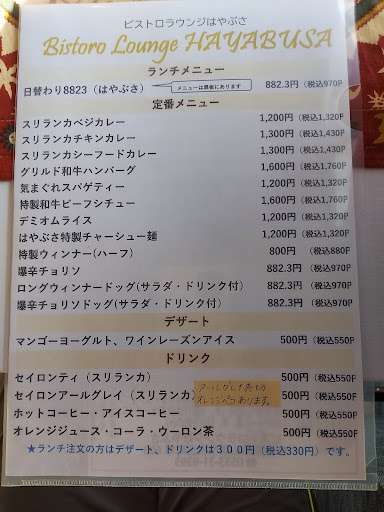 ビストロラウンジはやぶさ
Bistoro Lounge HAYABUSA
ランチメニュー
日替わり8823（はやぶさ） メニューは黒板にあります 882.3円（税込970P
定番メニュー
スリランカベジカレー 1,200円（税込1,320P
スリランカチキンカレー 1,300円（税込1,430P
スリランカシーフードカレー 1,300円（税込1,430P
グリルド和牛ハンバーグ 1,600円（税込1,760P
気まぐれスパゲティー 1,200円（税込1,320P
特製和牛ビーフシチュー 1,600円（税込1,760P
デミオムライス 1,200円（税込1,320P
はやぶさ特製チャーシュー麺 1,200円（税込1,320P
特製ウィンナー(ハーフ) 800円 （税込880P
爆辛チョリソ 882.3円（税込970P
ロングウィンナードッグ(サラダ・ドリンク付) 882.3円（税込970P
爆辛チョリソドッグ(サラダ・ドリンク付) 882.3円（税込970P
デザート
マンゴーヨーグルト、ワインレーズンアイス 500円（税込550P
ドリンク
セイロンティ（スリランカ） 500円（税込550P
セイロンアールグレイ（スリランカ） 500円（税込550P
オレンジペコあります。
ホットコーヒー・アイスコーヒー 500円（税込550P
オレンジジュース・コーラ・ウーロン茶 500円（税込550P
★ランチ注文の方はデザート、ドリンクは３００円（税込330円）です。